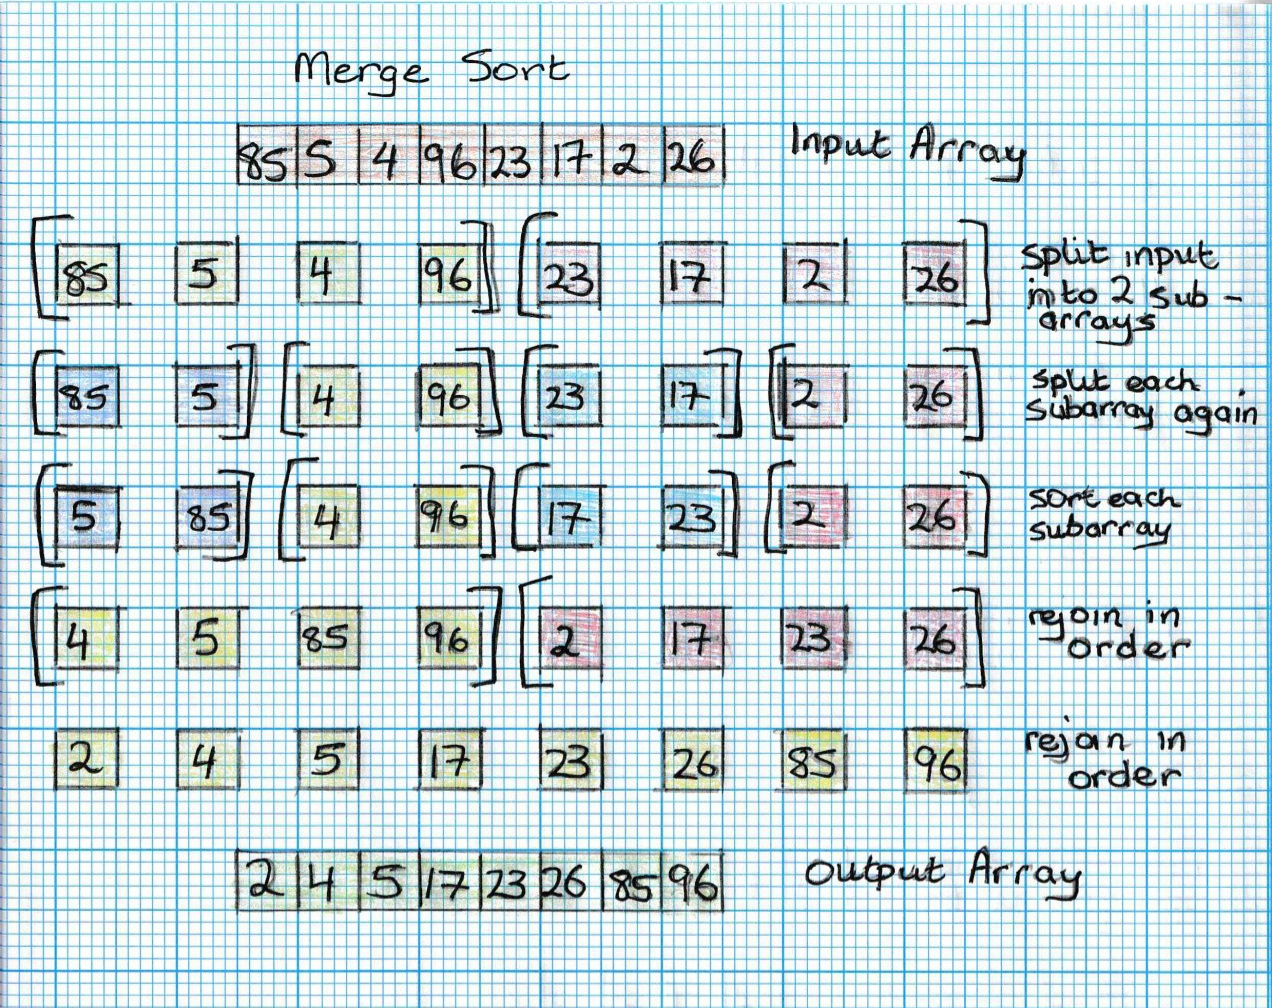 Merge Sort
85 5 4 96 23 17 2 26 Input Array
[85 5 4 96] [23 17 2 26] split input
into 2 sub-
arrays
[85 5] [4 96] [23 17] [2 26] split each
subarray again
[5 85] [4 96] [17 23] [2 26] sort each
subarray
[4 5 85 96] [2 17 23 26] rejoin in
order
2 4 5 17 23 26 85 96 rejoin in
order
2 4 5 17 23 26 85 96 Output Array